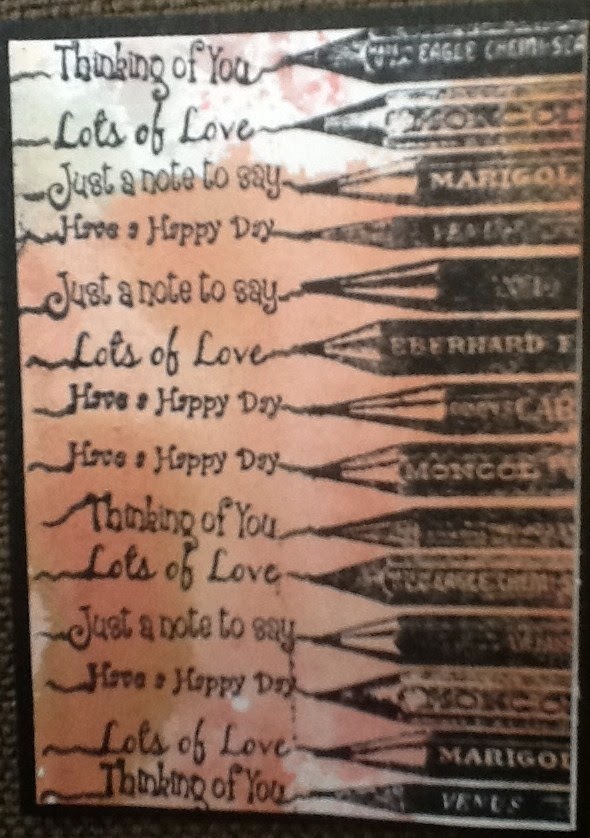 Thinking of You EAGLE CHEMI-SEA
Lots of Love MONGOL
Just a note to say MARIGOL
Have a Happy Day VENUS
Just a note to say
Lots of Love EBERHARD F
Have a Happy Day
Have a Happy Day MONGOL
Thinking of You
Lots of Love EAGLE CHEMI
Just a note to say
Have a Happy Day MONGO
Lots of Love MARIGOL
Thinking of You VENUS